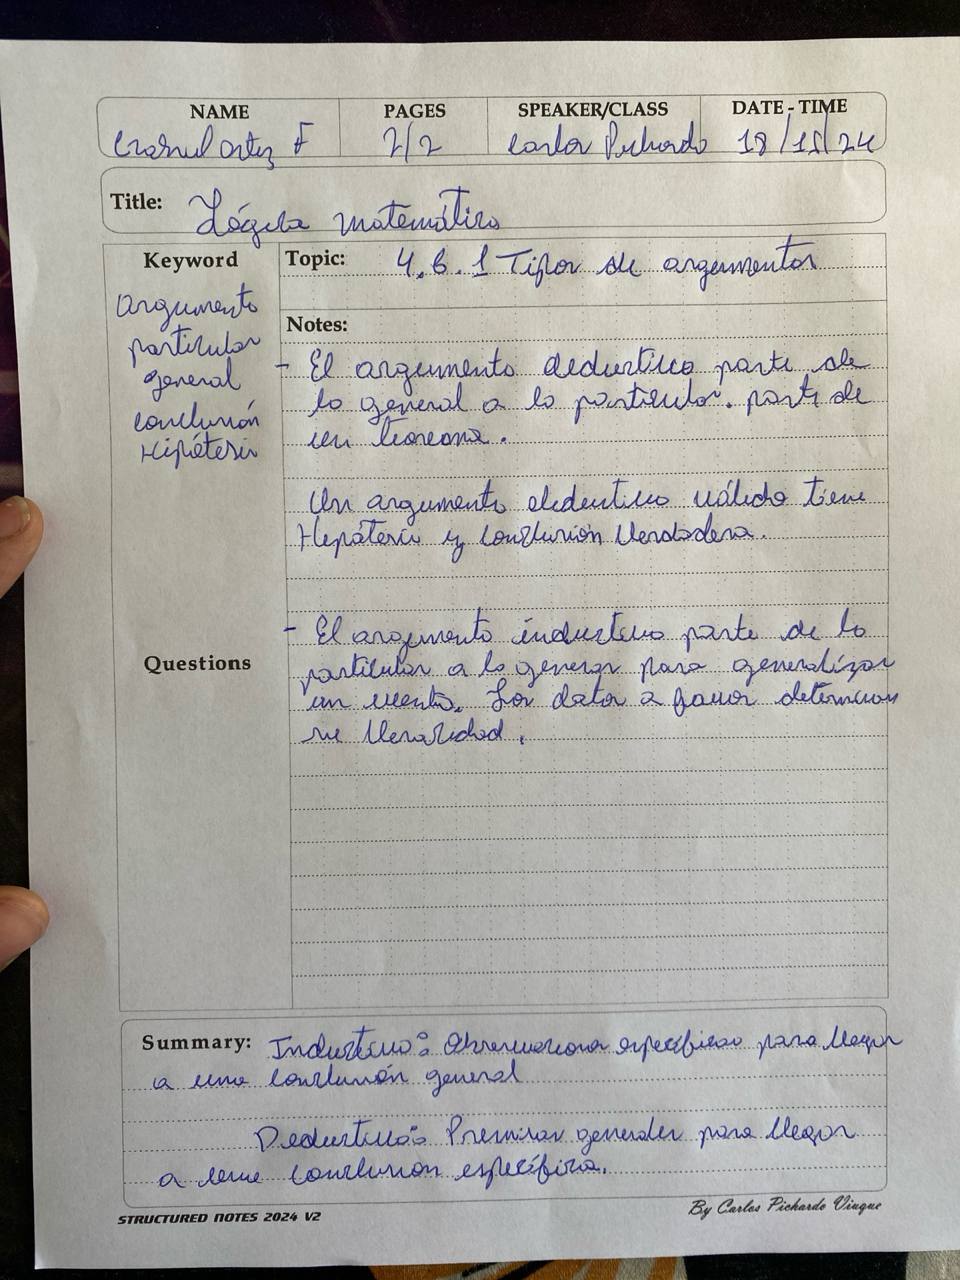 NAME PAGES SPEAKER/CLASS DATE - TIME
Ortiz F 2/2 Carlos Pichardo 18/11/24
Title: Lógica matemática
Keyword
Argumento
particular
general
conclusión
Hipótesis
Questions
Topic: 4.6.1 Tipos de argumentos
Notes:
- El argumento deductivo parte de
lo general a lo particular. parte de
un teorema.
Un argumento deductivo válido tiene
Hipótesis y conclusión verdadera.
- El argumento inductivo parte de lo
particular a lo general para generalizar
un evento. Los datos a favor determinan
su veracidad.
Summary: Inductivo: Observaciones específicas para llegar
a una conclusión general
Deductivo: Premisas generales para llegar
a una conclusión específica.
STRUCTURED NOTES 2024 V2
By Carlos Pichardo Viuque